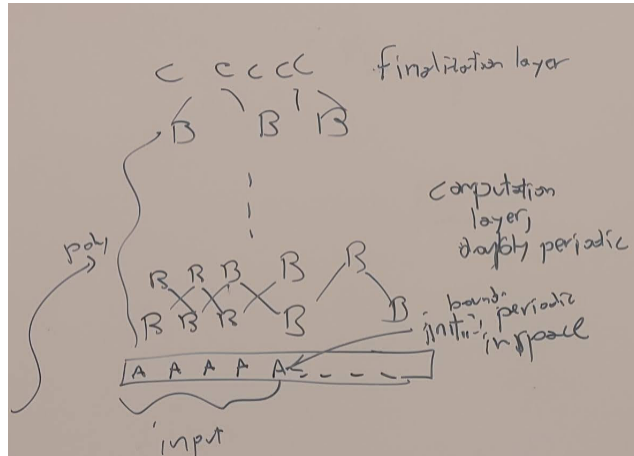 C C C C C
finalization layer
B B B
computation
layer,
doubly periodic
poly
B B B B B
B B B B B
bound.
periodic
in space
A A A A A
input